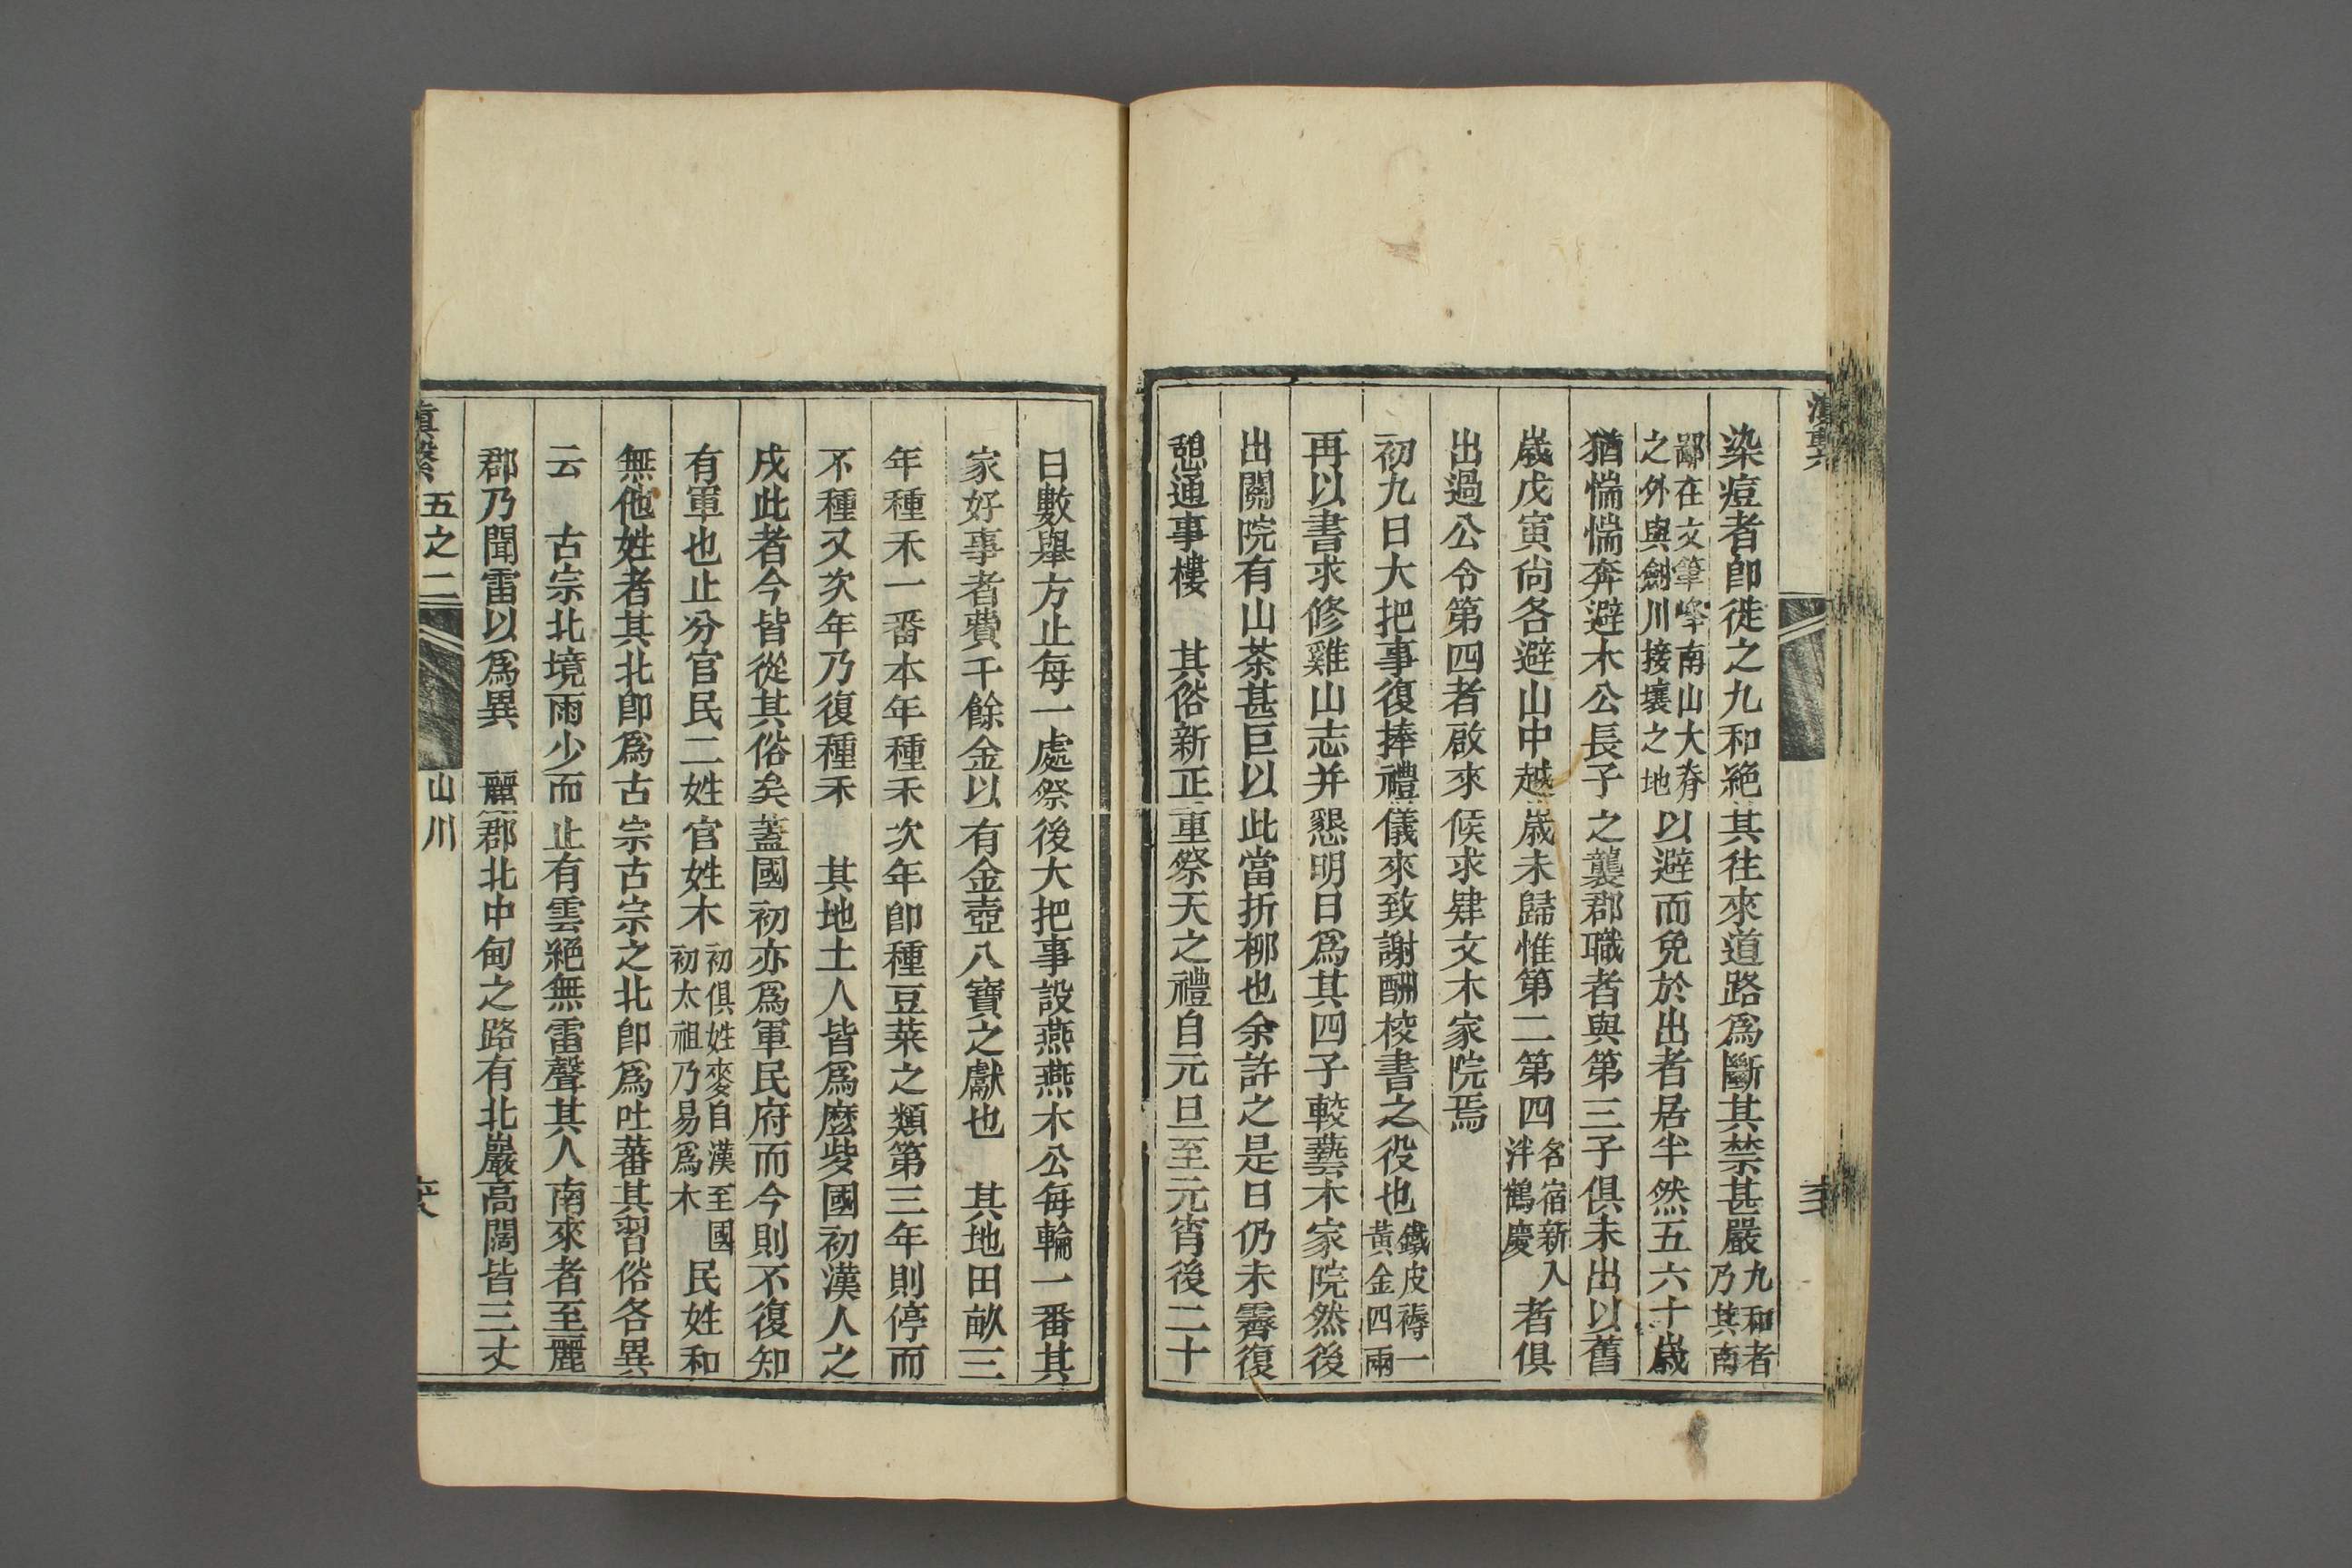 染痘者卽徙之九和絕其往來道路爲斷其禁甚嚴九和者乃其南
鄙在文筆峯南山大脊之外與劍川接壤之地以避而免於出者居半然五六十歲
猶惴惴奔避木公長子之襲郡職者與第三子俱未出以舊
歲戊寅尙各避山中越歲未歸惟第二第四名宿新入泮鶴慶者俱
出過公令第四者啟來候求肄文木家院焉
初九日大把事復捧禮儀來致謝酬校書之役也鐵皮褥一黃金四兩
再以書求修雞山志并懇明日爲其四子較藝木家院然後
出關院有山茶甚巨以此當折柳也余許之是日仍未霽復
憩通事樓　其俗新正重祭天之禮自元旦至元宵後二十
日數舉方止每一處祭後大把事設燕燕木公每輪一番其
家好事者費千餘金以有金壺八寶之獻也　其地田畝三
年種禾一番本年種禾次年卽種豆菜之類第三年則停而
不種又次年乃復種禾　其地土人皆爲麽些國初漢人之
戍此者今皆從其俗矣蓋國初亦爲軍民府而今則不復知
有軍也止分官民二姓官姓木初俱姓麥自漢至國初太祖乃易爲木民姓和
無他姓者其北卽爲古宗古宗之北卽爲吐蕃其習俗各異
云　古宗北境雨少而止有雲絕無雷聲其人南來者至麗
郡乃聞雷以爲異　麗郡北中甸之路有北巖高闊皆三丈
滇繫 五之二 山川